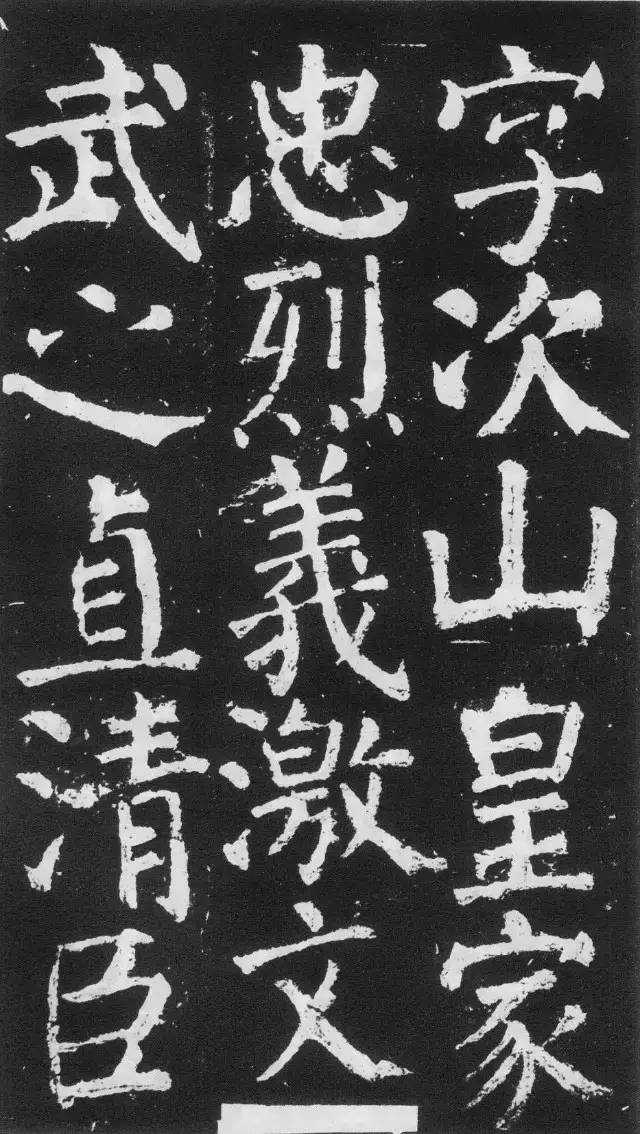 字次山皇家
忠烈義激文
武之直清臣